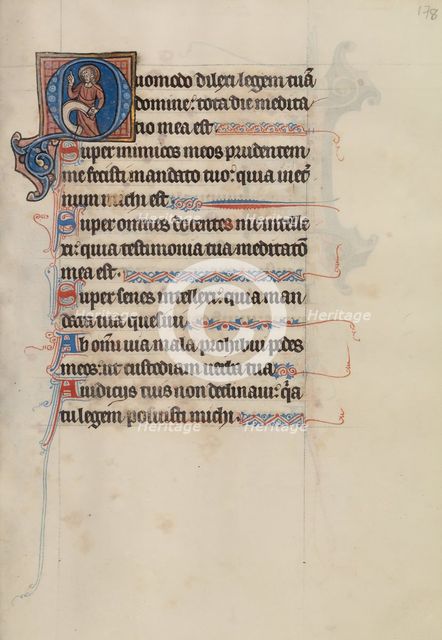 178
Quomodo dilexi legem tuā
domine: tota die medita
tio mea est
Super inimicos meos prudentem
me fecisti mandato tuo: quia in et̄
num michi est
Super omnes docentes me intelle
xi: quia testimonia tua meditatō
mea est.
Super senes intellexi: quia man
data tua quesivi
Ab om̄i via mala prohibui pedes
meos: ut custodiam verba tua
A iudiciis tuis non declinavi: q̄a
tu legem posuisti michi.
Heritage Heritage
Heritage Heritage
Heritage Heritage